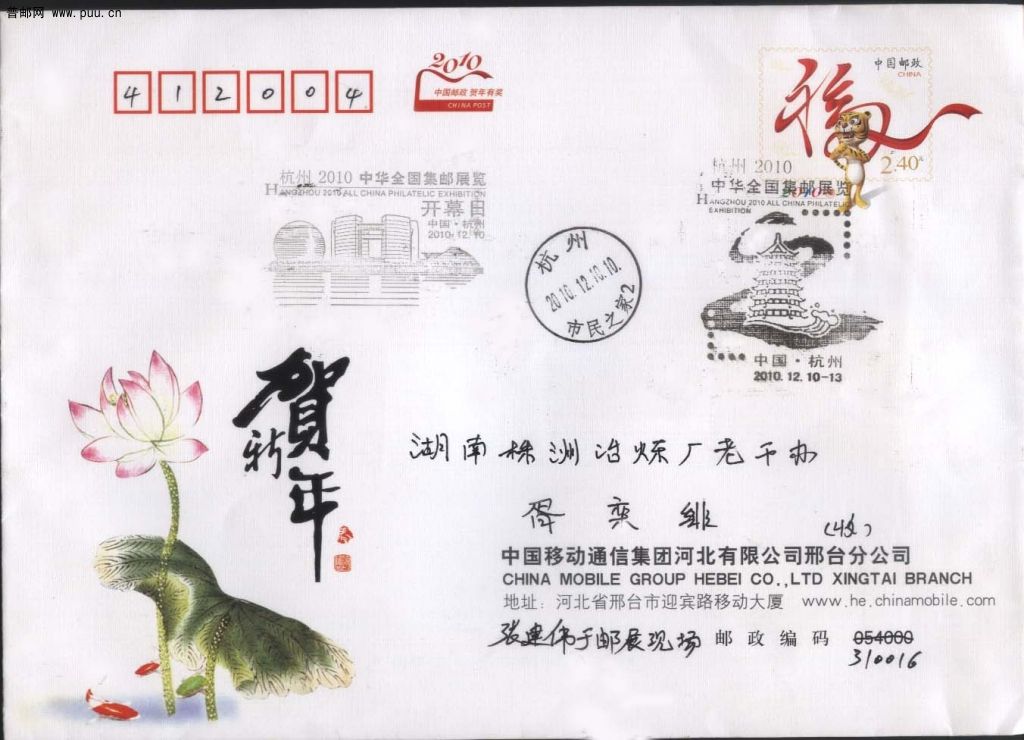 普邮网 www.puu.cn
412004
2010
中国邮政 贺年有奖
CHINA POST
中国邮政
CHINA
2.40元
杭州 2010 中华全国集邮展览
HANGZHOU 2010 ALL CHINA PHILATELIC EXHIBITION
开幕日
中国·杭州
2010.12.10
杭州
2010.12.10.10.
市民之家2
杭州 2010
中华全国集邮展览
HANGZHOU 2010 ALL CHINA PHILATELIC
EXHIBITION
中国·杭州
2010.12.10-13
贺新年
湖南株洲冶炼厂老干办
奕 维
(收)
中国移动通信集团河北有限公司邢台分公司
CHINA MOBILE GROUP HEBEI CO.,LTD XINGTAI BRANCH
地址：河北省邢台市迎宾路移动大厦 www.he.chinamobile.com
张建伟于邮展现场 邮政编码 054000
310016